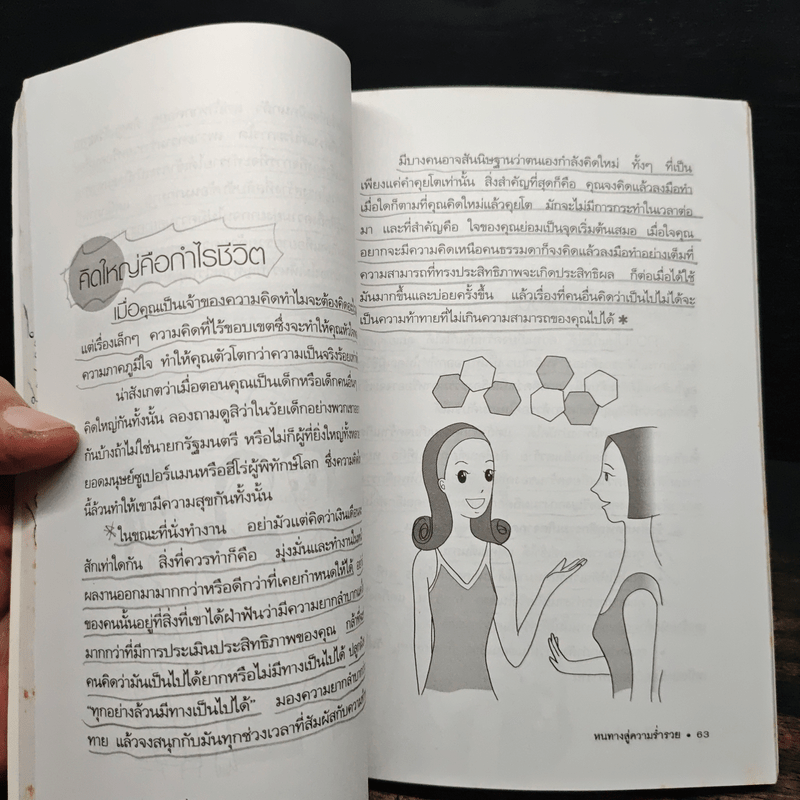 คิดใหญ่คือกำไรชีวิต
เมื่อคุณเป็นเจ้าของความคิดทำไมจะต้องคิด
แต่เรื่องเล็กๆ ความคิดที่ไร้ขอบเขตซึ่งจะทำให้คุณ
ความภาคภูมิใจ ทำให้คุณตัวโตกว่าความเป็นจริง
น่าสังเกตว่าเมื่อตอนคุณเป็นเด็กหรือเด็กคน
คิดใหญ่กันทั้งนั้น ลองถามดูสิว่าในวัยเด็กอย่างพวกเขา
กันบ้างถ้าไม่ใช่นายกรัฐมนตรี หรือไม่ก็ผู้ที่ยิ่งใหญ่
ยอดมนุษย์ซูเปอร์แมนหรือฮีโร่ผู้พิทักษ์โลก ซึ่งความคิด
นี้ล้วนทำให้เขามีความสุขกันทั้งนั้น
*ในขณะที่นั่งทำงาน อย่ามัวแต่คิดว่าเงินเดือน
สักเท่าใดกัน สิ่งที่ควรทำก็คือ มุ่งมั่นและทำงาน
ผลงานออกมามากกว่าหรือดีกว่าที่เคยกำหนดให้ได้
ของคนนั้นอยู่ที่สิ่งที่เขาได้ฝ่าฟันว่ามีความยากลำบาก
มากกว่าที่มีการประเมินประสิทธิภาพของคุณ
คนคิดว่ามันเป็นไปได้ยากหรือไม่มีทางเป็นไปได้
"ทุกอย่างล้วนมีทางเป็นไปได้" มองความยากลำบาก
ทาย แล้วจงสนุกกับมันทุกช่วงเวลาที่สัมผัสกับความ
มีบางคนอาจสันนิษฐานว่าตนเองกำลังคิดใหม่ ทั้งๆ ที่เป็น
เพียงแค่คำคุยโตเท่านั้น สิ่งสำคัญที่สุดก็คือ คุณจงคิดแล้วลงมือทำ
เมื่อใดก็ตามที่คุณคิดใหม่แล้วคุยโต มักจะไม่มีการกระทำในเวลาต่อ
มา และที่สำคัญคือ ใจของคุณย่อมเป็นจุดเริ่มต้นเสมอ เมื่อใจคุณ
อยากจะมีความคิดเหนือคนธรรมดาก็จงคิดแล้วลงมือทำอย่างเต็มที่
ความสามารถที่ทรงประสิทธิภาพจะเกิดประสิทธิผล ก็ต่อเมื่อได้ใช้
มันมากขึ้นและบ่อยครั้งขึ้น แล้วเรื่องที่คนอื่นคิดว่าเป็นไปไม่ได้จะ
เป็นความท้าทายที่ไม่เกินความสามารถของคุณไปได้ *
หนทางสู่ความร่ำรวย • 63